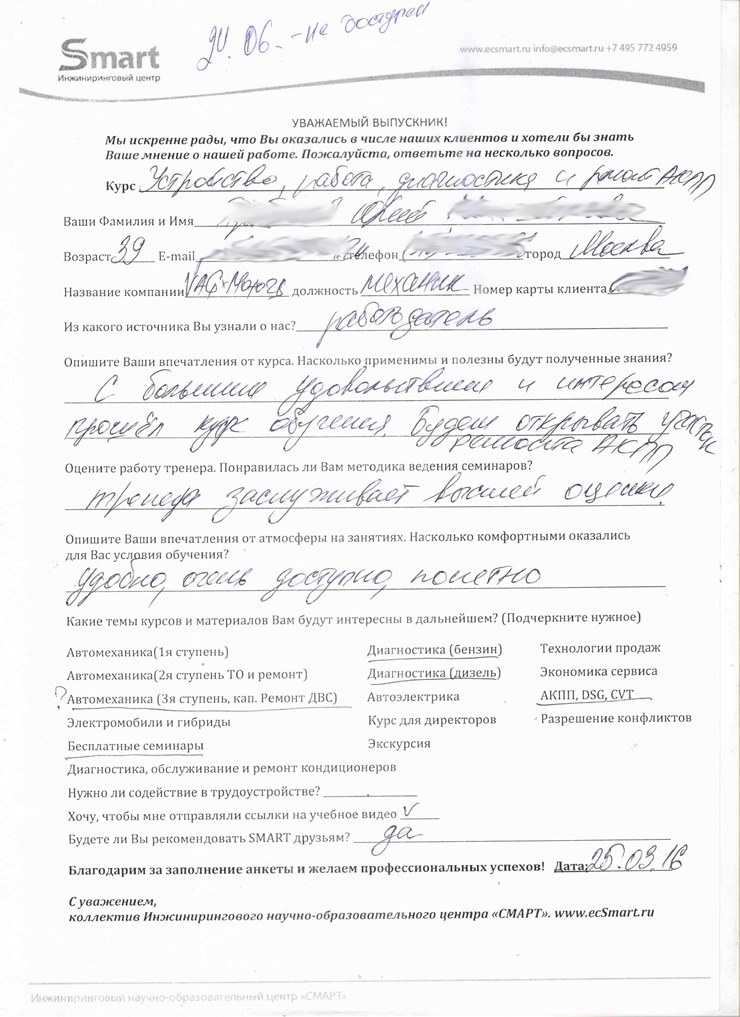 Smart
Инжиниринговый центр
24.06. - не доступен
www.ecsmart.ru info@ecsmart.ru +7 495 772 4959
УВАЖАЕМЫЙ ВЫПУСКНИК!
Мы искренне рады, что Вы оказались в числе наших клиентов и хотели бы знать
Ваше мнение о нашей работе. Пожалуйста, ответьте на несколько вопросов.
Курс Устройство, работа, диагностика и ремонт АКПП
Ваши Фамилия и Имя Юрий
Возраст 39 E-mail телефон город Москва
Название компании должность механик Номер карты клиента
Из какого источника Вы узнали о нас? работодатель
Опишите Ваши впечатления от курса. Насколько применимы и полезны будут полученные знания?
С большим удовольствием и интересом
прошёл курс обучения. Будем открывать участок
ремонта АКПП
Оцените работу тренера. Понравилась ли Вам методика ведения семинаров?
заслуживает высшей оценки.
Опишите Ваши впечатления от атмосферы на занятиях. Насколько комфортными оказались
для Вас условия обучения?
Удобно, очень доступно, понятно
Какие темы курсов и материалов Вам будут интересны в дальнейшем? (Подчеркните нужное)
Автомеханика(1я ступень) Диагностика (бензин) Технологии продаж
Автомеханика(2я ступень ТО и ремонт) Диагностика (дизель) Экономика сервиса
? Автомеханика (3я ступень, кап. Ремонт ДВС) Автоэлектрика АКПП, DSG, CVT
Электромобили и гибриды Курс для директоров Разрешение конфликтов
Бесплатные семинары Экскурсия
Диагностика, обслуживание и ремонт кондиционеров
Нужно ли содействие в трудоустройстве?
Хочу, чтобы мне отправляли ссылки на учебное видео V
Будете ли Вы рекомендовать SMART друзьям? да
Благодарим за заполнение анкеты и желаем профессиональных успехов! Дата: 25.03.16
С уважением,
коллектив Инжинирингового научно-образовательного центра «СМАРТ». www.ecSmart.ru
Инжиниринговый научно-образовательный центр «СМАРТ»